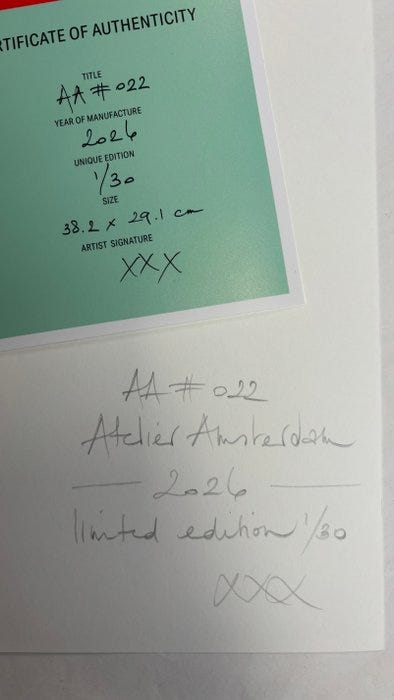 RTIFICATE OF AUTHENTICITY
TITLE
AA # 022
YEAR OF MANUFACTURE
2026
UNIQUE EDITION
1/30
SIZE
38.2 x 29.1 cm
ARTIST SIGNATURE
XXX
AA # 022
Atelier Amsterdam
— 2026 —
limited edition 1/30
XXX